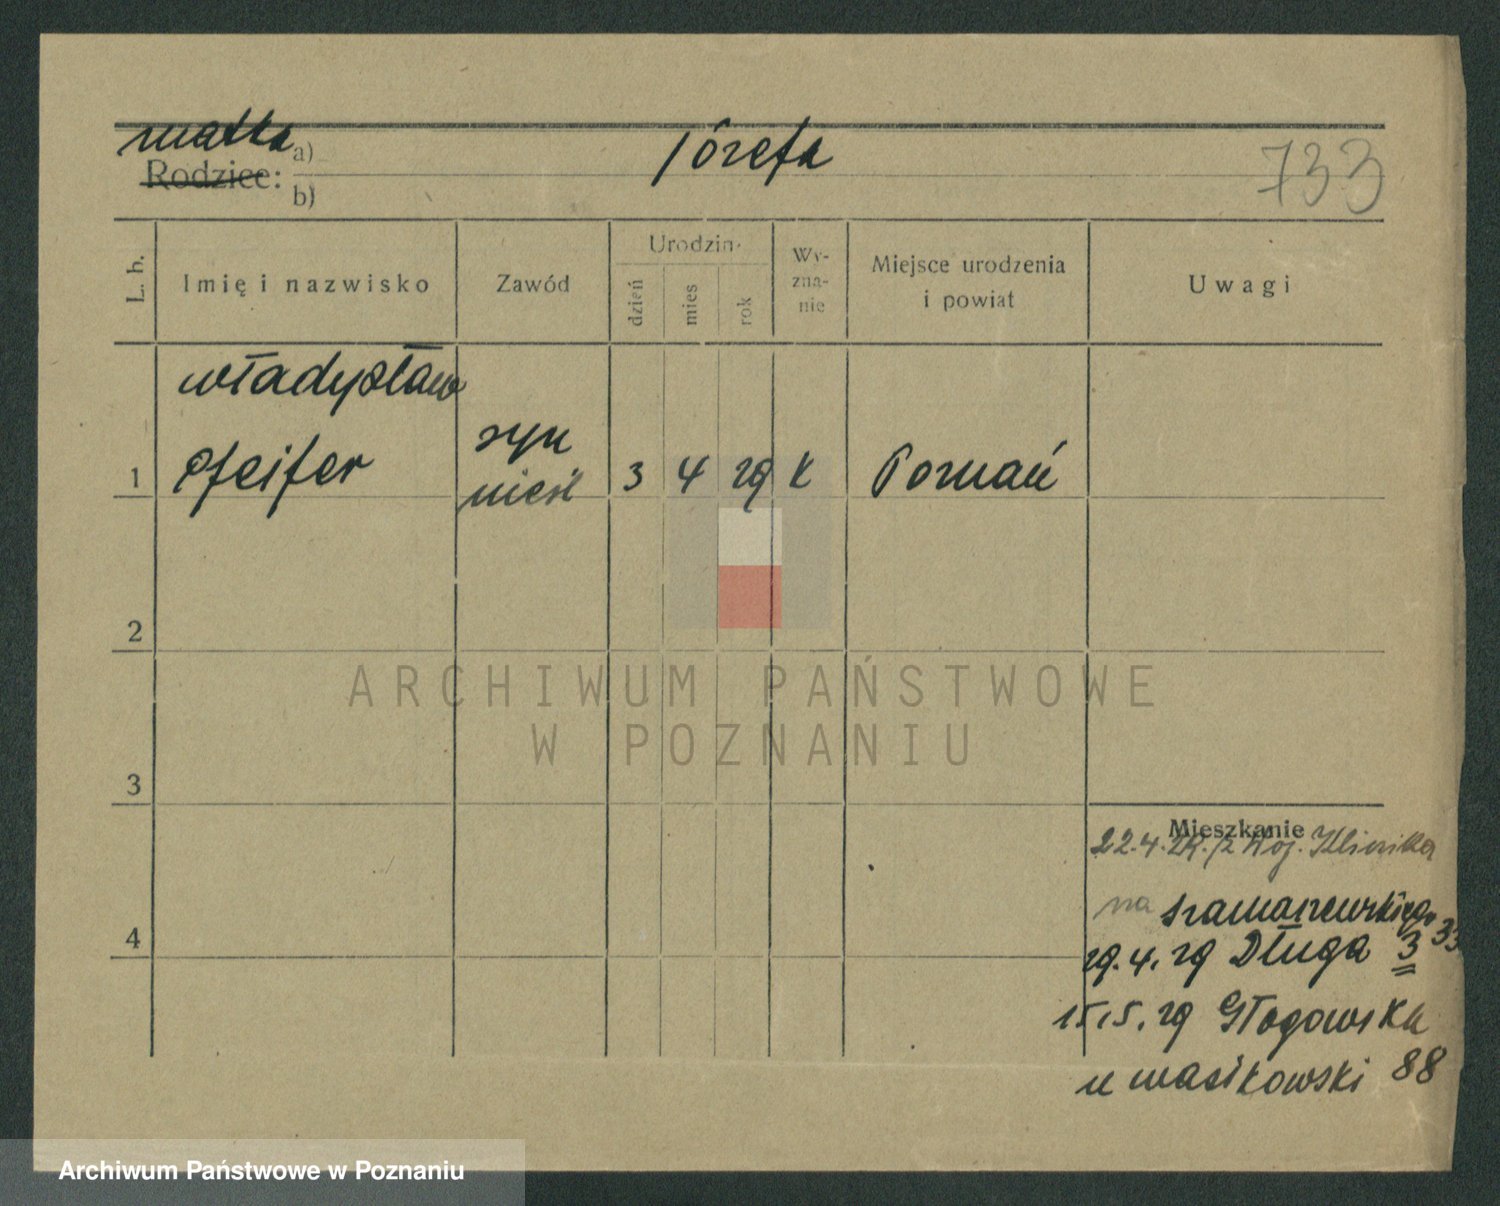 matka a) Józefa
Rodzice:
b)
733
L. b.
Imię i nazwisko
Zawód
Urodzin
dzień
mies
rok
Wy-
zna-
nie
Miejsce urodzenia
i powiat
Uwagi
Władysław
syn
1 Pfeifer nieśl 3 4 29 k Poznań
2
ARCHIWUM PAŃSTWOWE
W POZNANIU
3
Mieszkanie
22.4.29. Klinika
na Szamarzewskiego 33
4
29.4.29 Długa 3
15.5.29 Głogowska
u Maćkowski 88
Archiwum Państwowe w Poznaniu